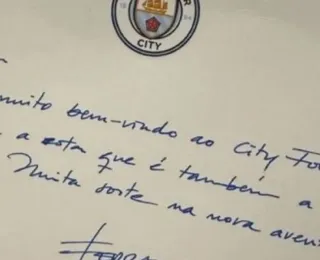 CITY
muito bem-vindo ao City Foo
a que é também a
Muita sorte na nova aven